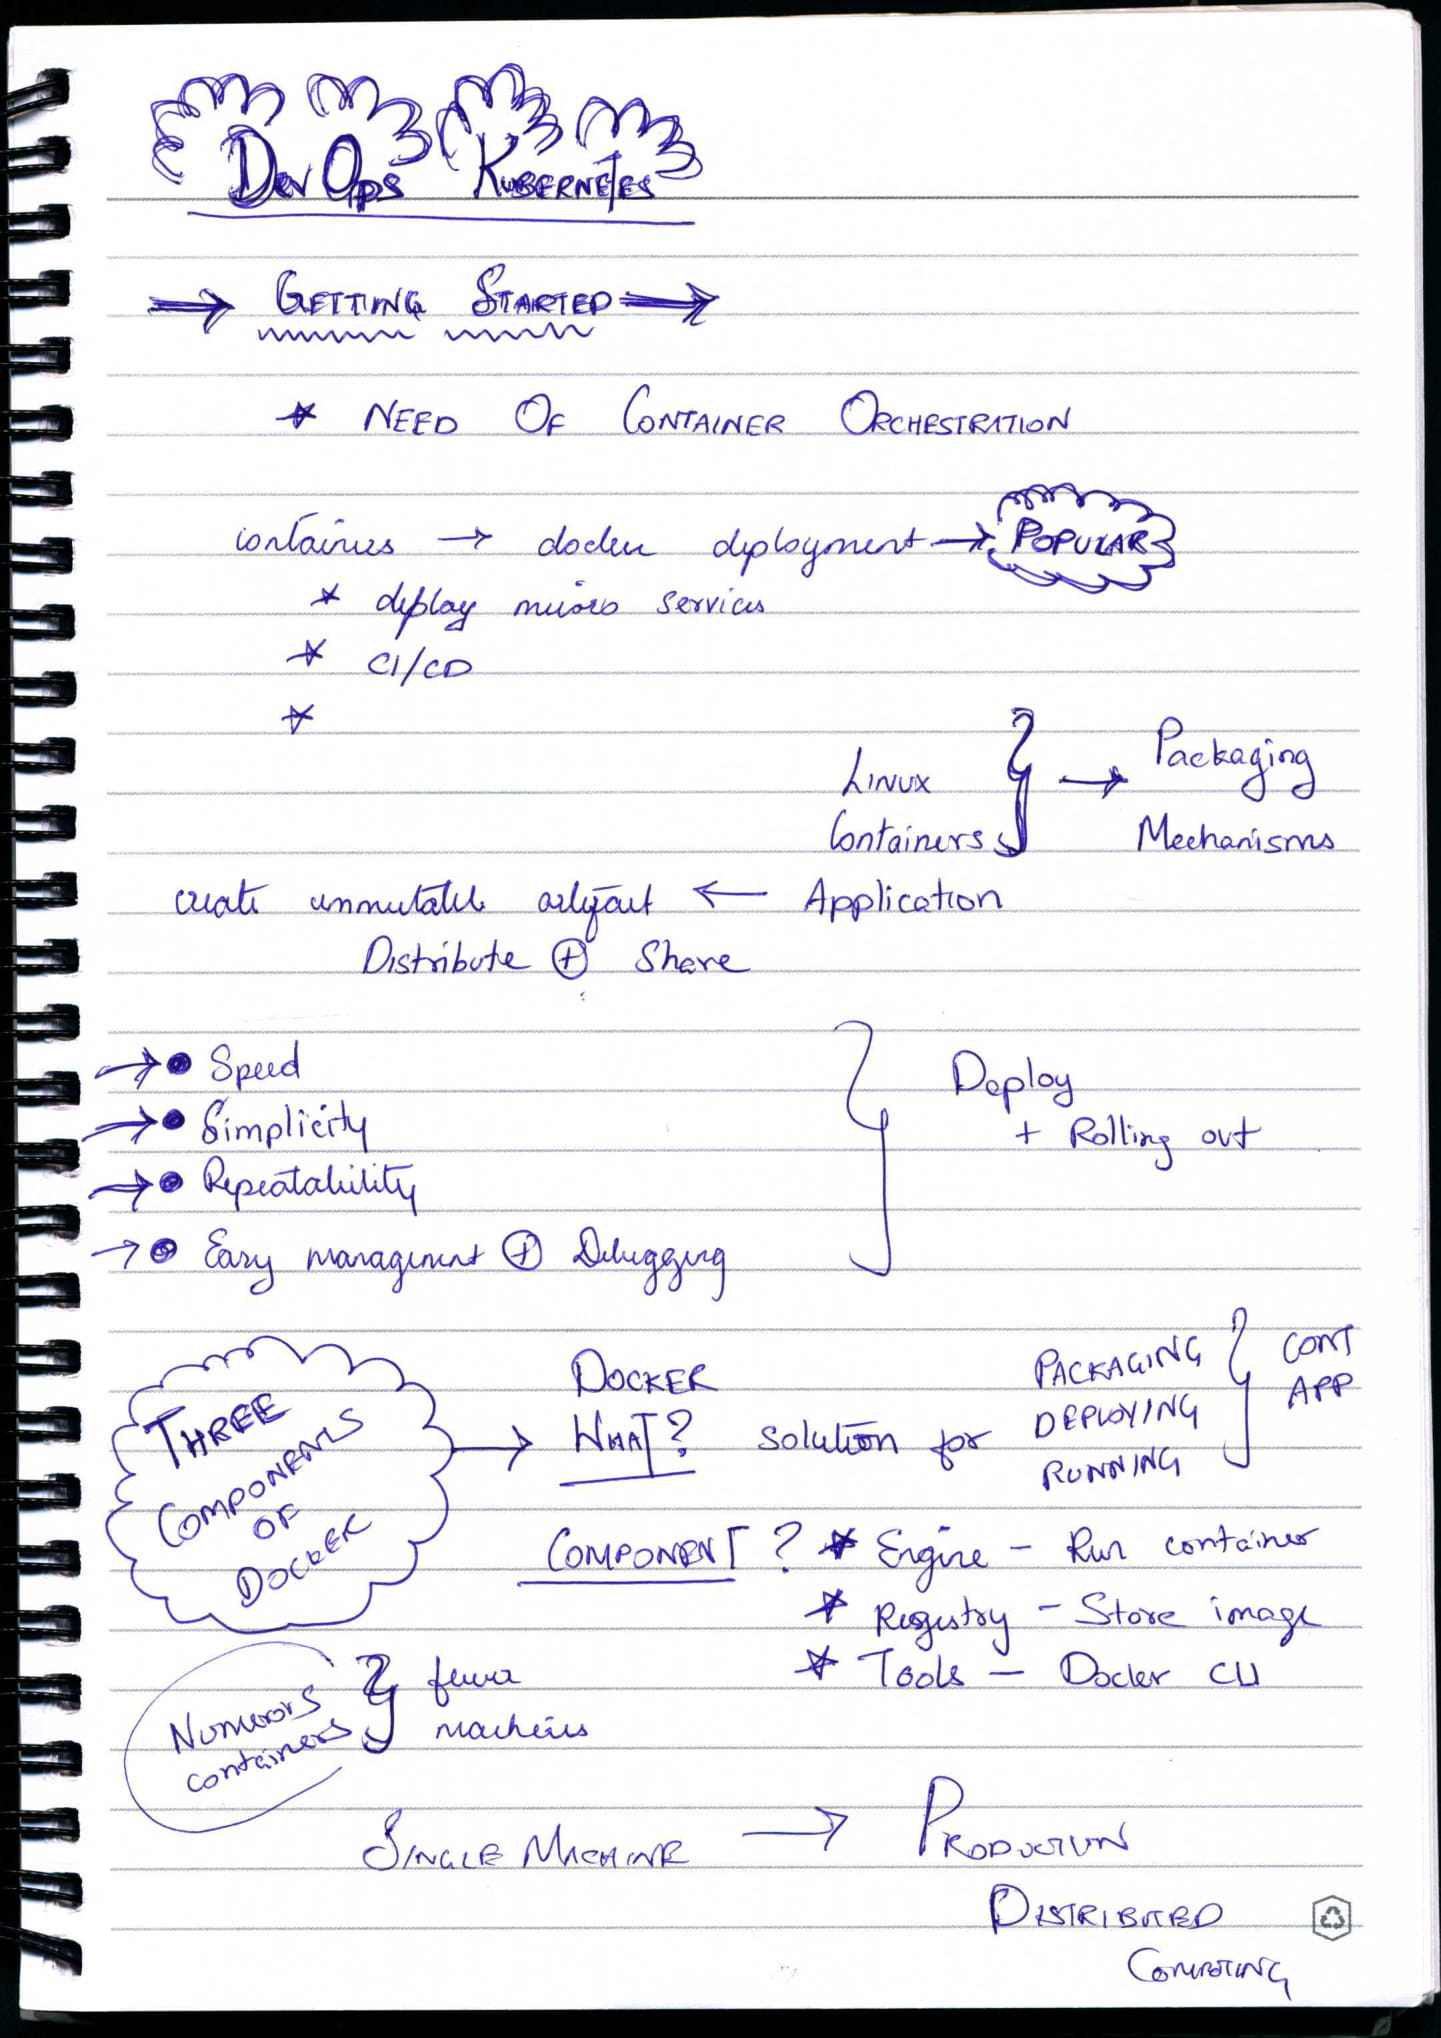 DevOps Kubernetes
→ Getting Started →
* Need Of Container Orchestration
containers → docker deployment → Popular
* deploy micro services
* CI/CD
*
Linux Containers } → Packaging Mechanisms
create immutable artifact ← Application
Distribute + Share
→ • Speed
→ • Simplicity
→ • Repeatability
→ • Easy management + Debugging
} Deploy
+ Rolling out
Three
Components
of
Docker
→ Docker
What? solution for
Packaging
Deploying
Running
} Cont
App
Component? * Engine - Run container
* Registry - Store image
* Tools - Docker CLI
Numerors
containers
} fewer
machines
Single Machine → Production
Distributed
Computing